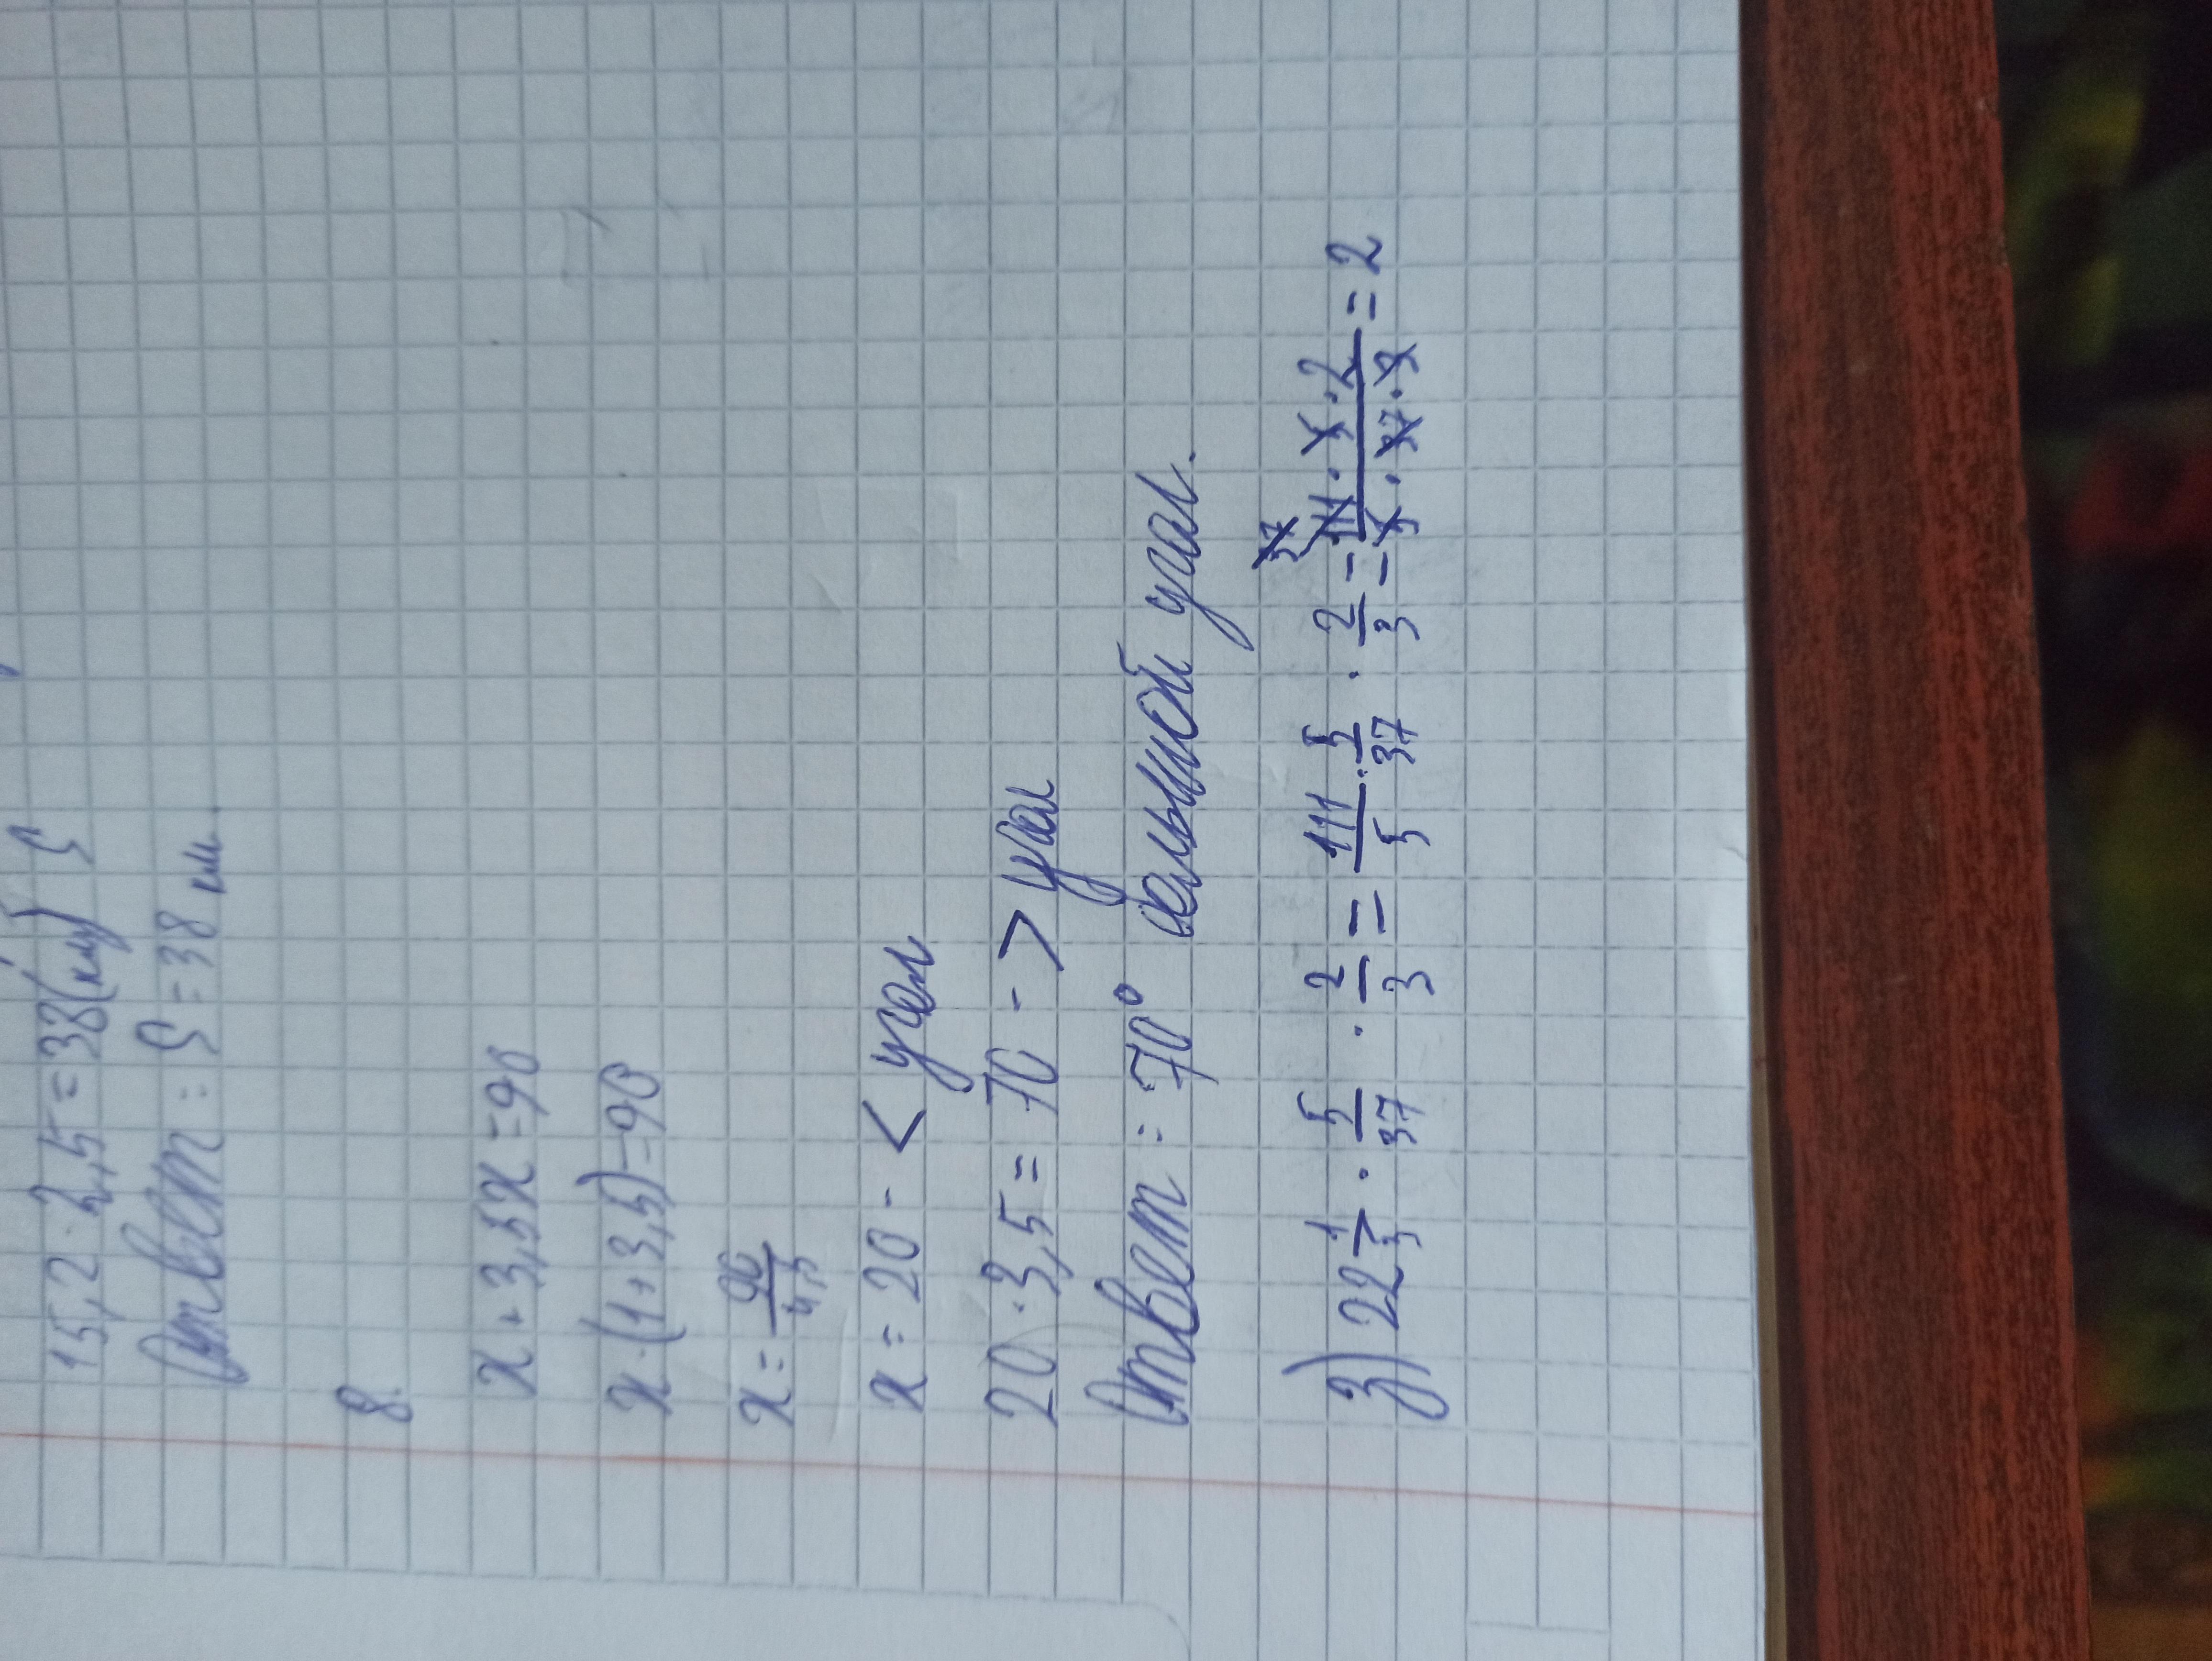 15,2 · 2,5 = 38 (км) S
Ответ: S = 38 км.
8.
x + 3,5x = 90
x · (1 + 3,5) = 90
x = 90/4,5
x = 20 - < угол
20 · 3,5 = 70 - > угол
Ответ: 70° больший угол.
37
3) 22 1/5 · 5/37 · 2/3 = 111/5 · 5/37 · 2/3 = 111 · 5 · 2/5 · 37 · 3 = 2